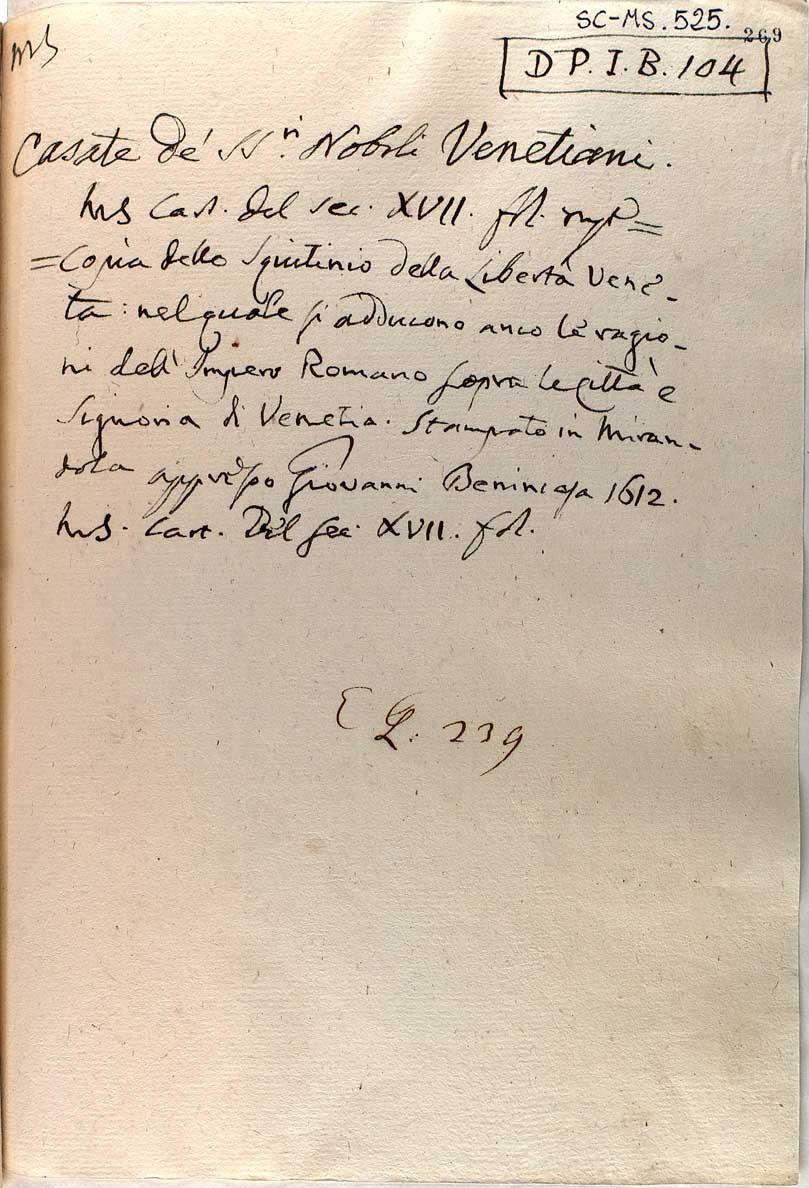 SC-MS. 525.
269
MS
D P. I. B. 104
Casate de' SS.ri Nobili Venetiani.
MS Cart. del sec. XVII. fol.
=Copia dello Squitinio della Libertà Vene-
ta: nel quale si adducono anco le ragio-
ni dell' Impero Romano sopra le Città e
Signoria di Venetia. Stampato in Miran-
dola appresso Giovanni Benincasa 1612.
MS. Cart. Del Sec. XVII. fol.
239